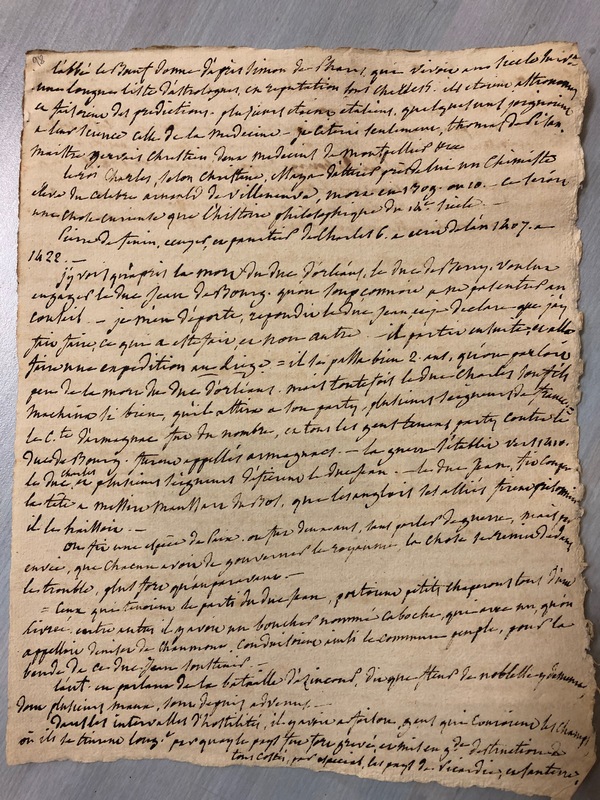 98
l'abbé le Bœuf donne d'après Simon de Phares, qui vivoit au 15e siecle
une longue liste d'astrologues, en reputation sous Charles 5. ils etoient astronomes
et faisoient des predictions. plusieurs etoient italiens, quelques uns joignoient
a leur science celle de la medecine - je citerai seulement, thomas de Pisan,
maître gervais Chrestien, deux medecins de montpellier &ca
le roi Charles, selon Christine, près de lui un Chimiste
eleve du celebre arnauld de Villeneuve, mort en 1309. ou 10 - ce seroit
une chose curieuse que l'histoire philosophique du 14e siecle. -
Pierre de fenin, ecuyer, et panetier de Charles 6. a ecrit de l'an 1407. a
1422. -
j'y vois qu'après la mort du duc d'orléans, le duc de Berry, voulut
engager le duc Jean de Bourg. qu'on soupçonnoit a ne pas entrer au
conseil. - je m'en deporte, repondit le duc Jean et je declare que j'ai
fait faire, ce qui a esté fait, et non autre. - il partit ensuite, et alla
faire une expedition au liege = il se passa bien 2. ans, qu'on parloit
peu de la mort du duc d'orléans. mais toutefois le duc Charles son fils
machina si bien, qu'il attira a son party, plusieurs seigneurs de france.
le C.te d'armagnac fut du nombre, et tous les gens tenans party contre le
duc de Bourg. furent appellés armagnacs. - la guerre s'établit vers 1410.
le duc Charles et plusieurs seigneurs defierent le duc Jean. - le duc Jean, fit couper
la tête a messire Mansart du Bos, que les anglois ses alliés, firent prisonnier
il le haïssoit. -
on fit une espèce de paix. on fut deux ans, sans parler de guerre, mais par
envie, que chacun avoit de gouverner le royaume la chose se remit dedans
le trouble, plus fort qu'auparavant. -
= ceux qui tenoient le parti du duc Jean, portoient petits chaperons tous d'une
livrée. entre autres il y avoit un boucher nommé caboche, qui avec un, qu'on
appelloit denisot de Chaumont, conduisoient ainsi le commun peuple, pour la
bande de ce duc Jean soustenir. -
l'aut. en parlant de la bataille d'azincourt, dit que fleur de noblesse y demeura,
dont plusieurs maux, sont depuis advenus. -
Dans les intervalles d'hostilités, il y avoit a foison, gens qui couroient les champs
où ils se tinrent long.s par quoy le pays fut fort grevé, et mis en g.de destruction de
tous costés, par especial, les pays de Picardie, et santerre.